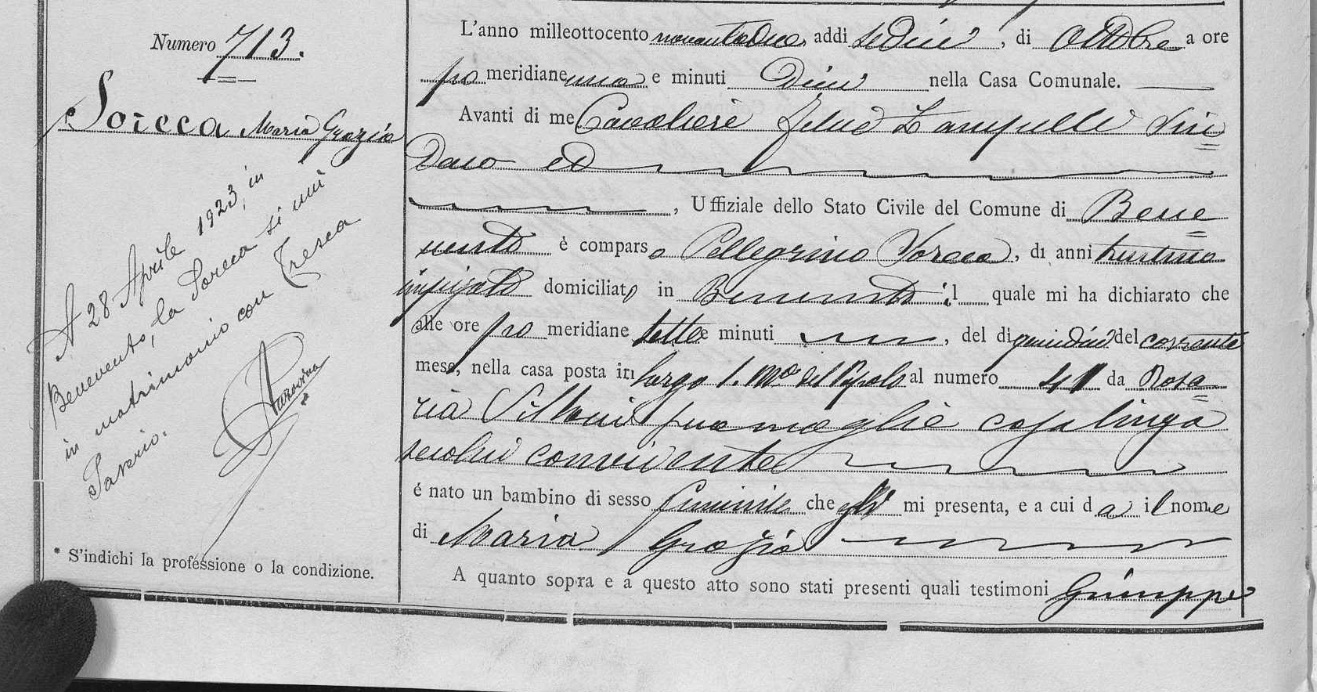 Numero 713.
Sorece Maria Grazia
A 28 Aprile 1923, in
Benevento, la Sorece si unì
in matrimonio con Tresca
Saverio.
* S'indichi la professione o la condizione.
L'anno milleottocento novantadue, addì sedici, di Ottobre a ore
po meridiane una e minuti Dieci nella Casa Comunale.
Avanti di me Cavaliere Zampelli Sin
daco ed
, Uffiziale dello Stato Civile del Comune di Bene
vento è comparso Pellegrino, di anni
impiegato domiciliato in Benevento il quale mi ha dichiarato che
alle ore po meridiane sette e minuti, del dì quindici del corrente
mese, nella casa posta in largo S. Mª del Popolo al numero 41 da Rosa
ria sua moglie casalinga
seco lui convivente
é nato un bambino di sesso feminile che egli mi presenta, e a cui dà il nome
di Maria Grazia
A quanto sopra e a questo atto sono stati presenti quali testimoni Giuseppe